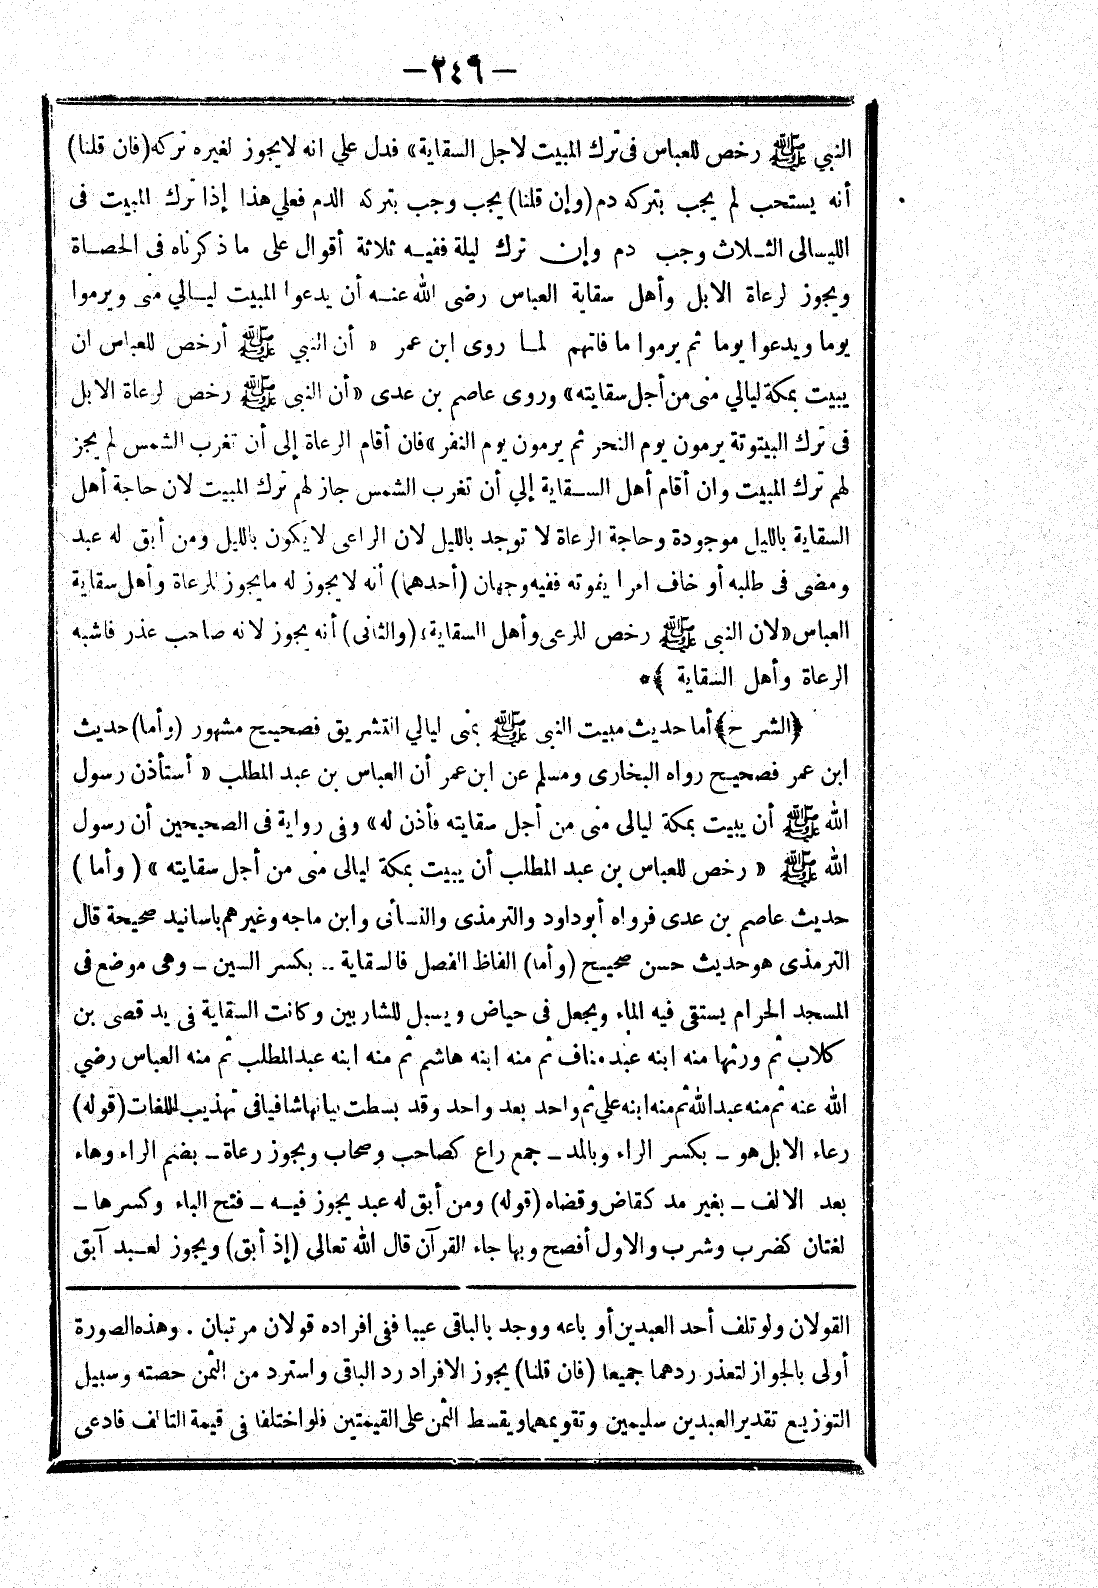 -٢٤٩-
النبي ﷺ رخص للعباس فى ترك المبيت لاجل السقاية» فدل علي انه لا يجوز لغيره تركه (فان قلنا)
أنه يستحب لم يجب بتركه دم (وإن قلنا) يجب وجب بتركه الدم فعلي هذا إذا ترك المبيت فى
الليالى الثلاث وجب دم وإن ترك ليلة ففيه ثلاثة أقوال على ما ذكرناه فى الحصاة
ويجوز لرعاة الابل وأهل سقاية العباس رضى الله عنه أن يدعوا المبيت ليالي منى ويرموا
يوما ويدعوا يوما ثم يرموا ما فاتهم لما روى ابن عمر « أن النبي ﷺ أرخص للعباس ان
يبيت بمكة ليالي منى من أجل سقايته» وروى عاصم بن عدى «أن النبى ﷺ رخص لرعاة الابل
فى ترك البيتوتة يرمون يوم النحر ثم يرمون يوم النفر» فان أقام الرعاة إلى أن تغرب الشمس لم يجز
لهم ترك المبيت وان أقام أهل السقاية إلي أن تغرب الشمس جاز لهم ترك المبيت لان حاجة أهل
السقاية بالليل موجودة وحاجة الرعاة لا توجد بالليل لان الراعى لا يكون بالليل ومن أبق له عبد
ومضى فى طلبه أو خاف امرا يفوته ففيه وجهان (أحدهما) أنه لا يجوز له ما يجوز للرعاة وأهل سقاية
العباس «لان النبى ﷺ رخص للرعى وأهل السقاية، (والثانى) أنه يجوز لانه صاحب عذر فاشبه
الرعاة وأهل السقاية ﴾*
﴿الشرح﴾ أما حديث مبيت النبى ﷺ بمنى ليالي التشريق فصحيح مشهور (وأما) حديث
ابن عمر فصحيح رواه البخارى ومسلم عن ابن عمر أن العباس بن عبد المطلب « أستأذن رسول
الله ﷺ أن يبيت بمكة ليالى منى من أجل سقايته فأذن له» وفى رواية فى الصحيحين أن رسول
الله ﷺ « رخص للعباس بن عبد المطلب أن يبيت بمكة ليالى منى من أجل سقايته » ( وأما )
حديث عاصم بن عدى فرواه أبوداود والترمذى والنسائى وابن ماجه وغيرهم باسانيد صحيحة قال
الترمذى هو حديث حسن صحيح (وأما) الفاظ الفصل فالسقاية .. بكسر السين - وهى موضع فى
المسجد الحرام يستقى فيه الماء ويجعل فى حياض ويسبل للشاربين وكانت السقاية فى يد قصى بن
كلاب ثم ورثها منه ابنه عبد مناف ثم منه ابنه هاشم ثم منه ابنه عبدالمطلب ثم منه العباس رضي
الله عنه ثم منه عبد الله ثم منه ابنه علي ثم واحد بعد واحد وقد بسطت بيانها شافيا فى تهذيب اللغات (قوله)
رعاء الابل هو - بكسر الراء وبالمد - جمع راع كصاحب وصحاب ويجوز رعاة - بضم الراء وهاء
بعد الالف - بغير مد كقاض وقضاه (قوله) ومن أبق له عبد يجوز فيه - فتح الباء وكسرها -
لغتان كضرب وشرب والاول أفصح وبها جاء القرآن قال الله تعالى (إذ أبق) ويجوز لعبد آبق
القولان ولو تلف أحد العبدين أو باعه ووجد بالباقى عيبا ففى افراده قولان مرتبان . وهذه الصورة
أولى بالجواز لتعذر ردهما جميعا (فان قلنا) يجوز الافراد رد الباقى واسترد من الثمن حصته وسبيل
التوزيع تقدير العبدين سليمين وتقويمهما ويقسط الثمن على القيمتين فلو اختلفا فى قيمة التالف فادعى